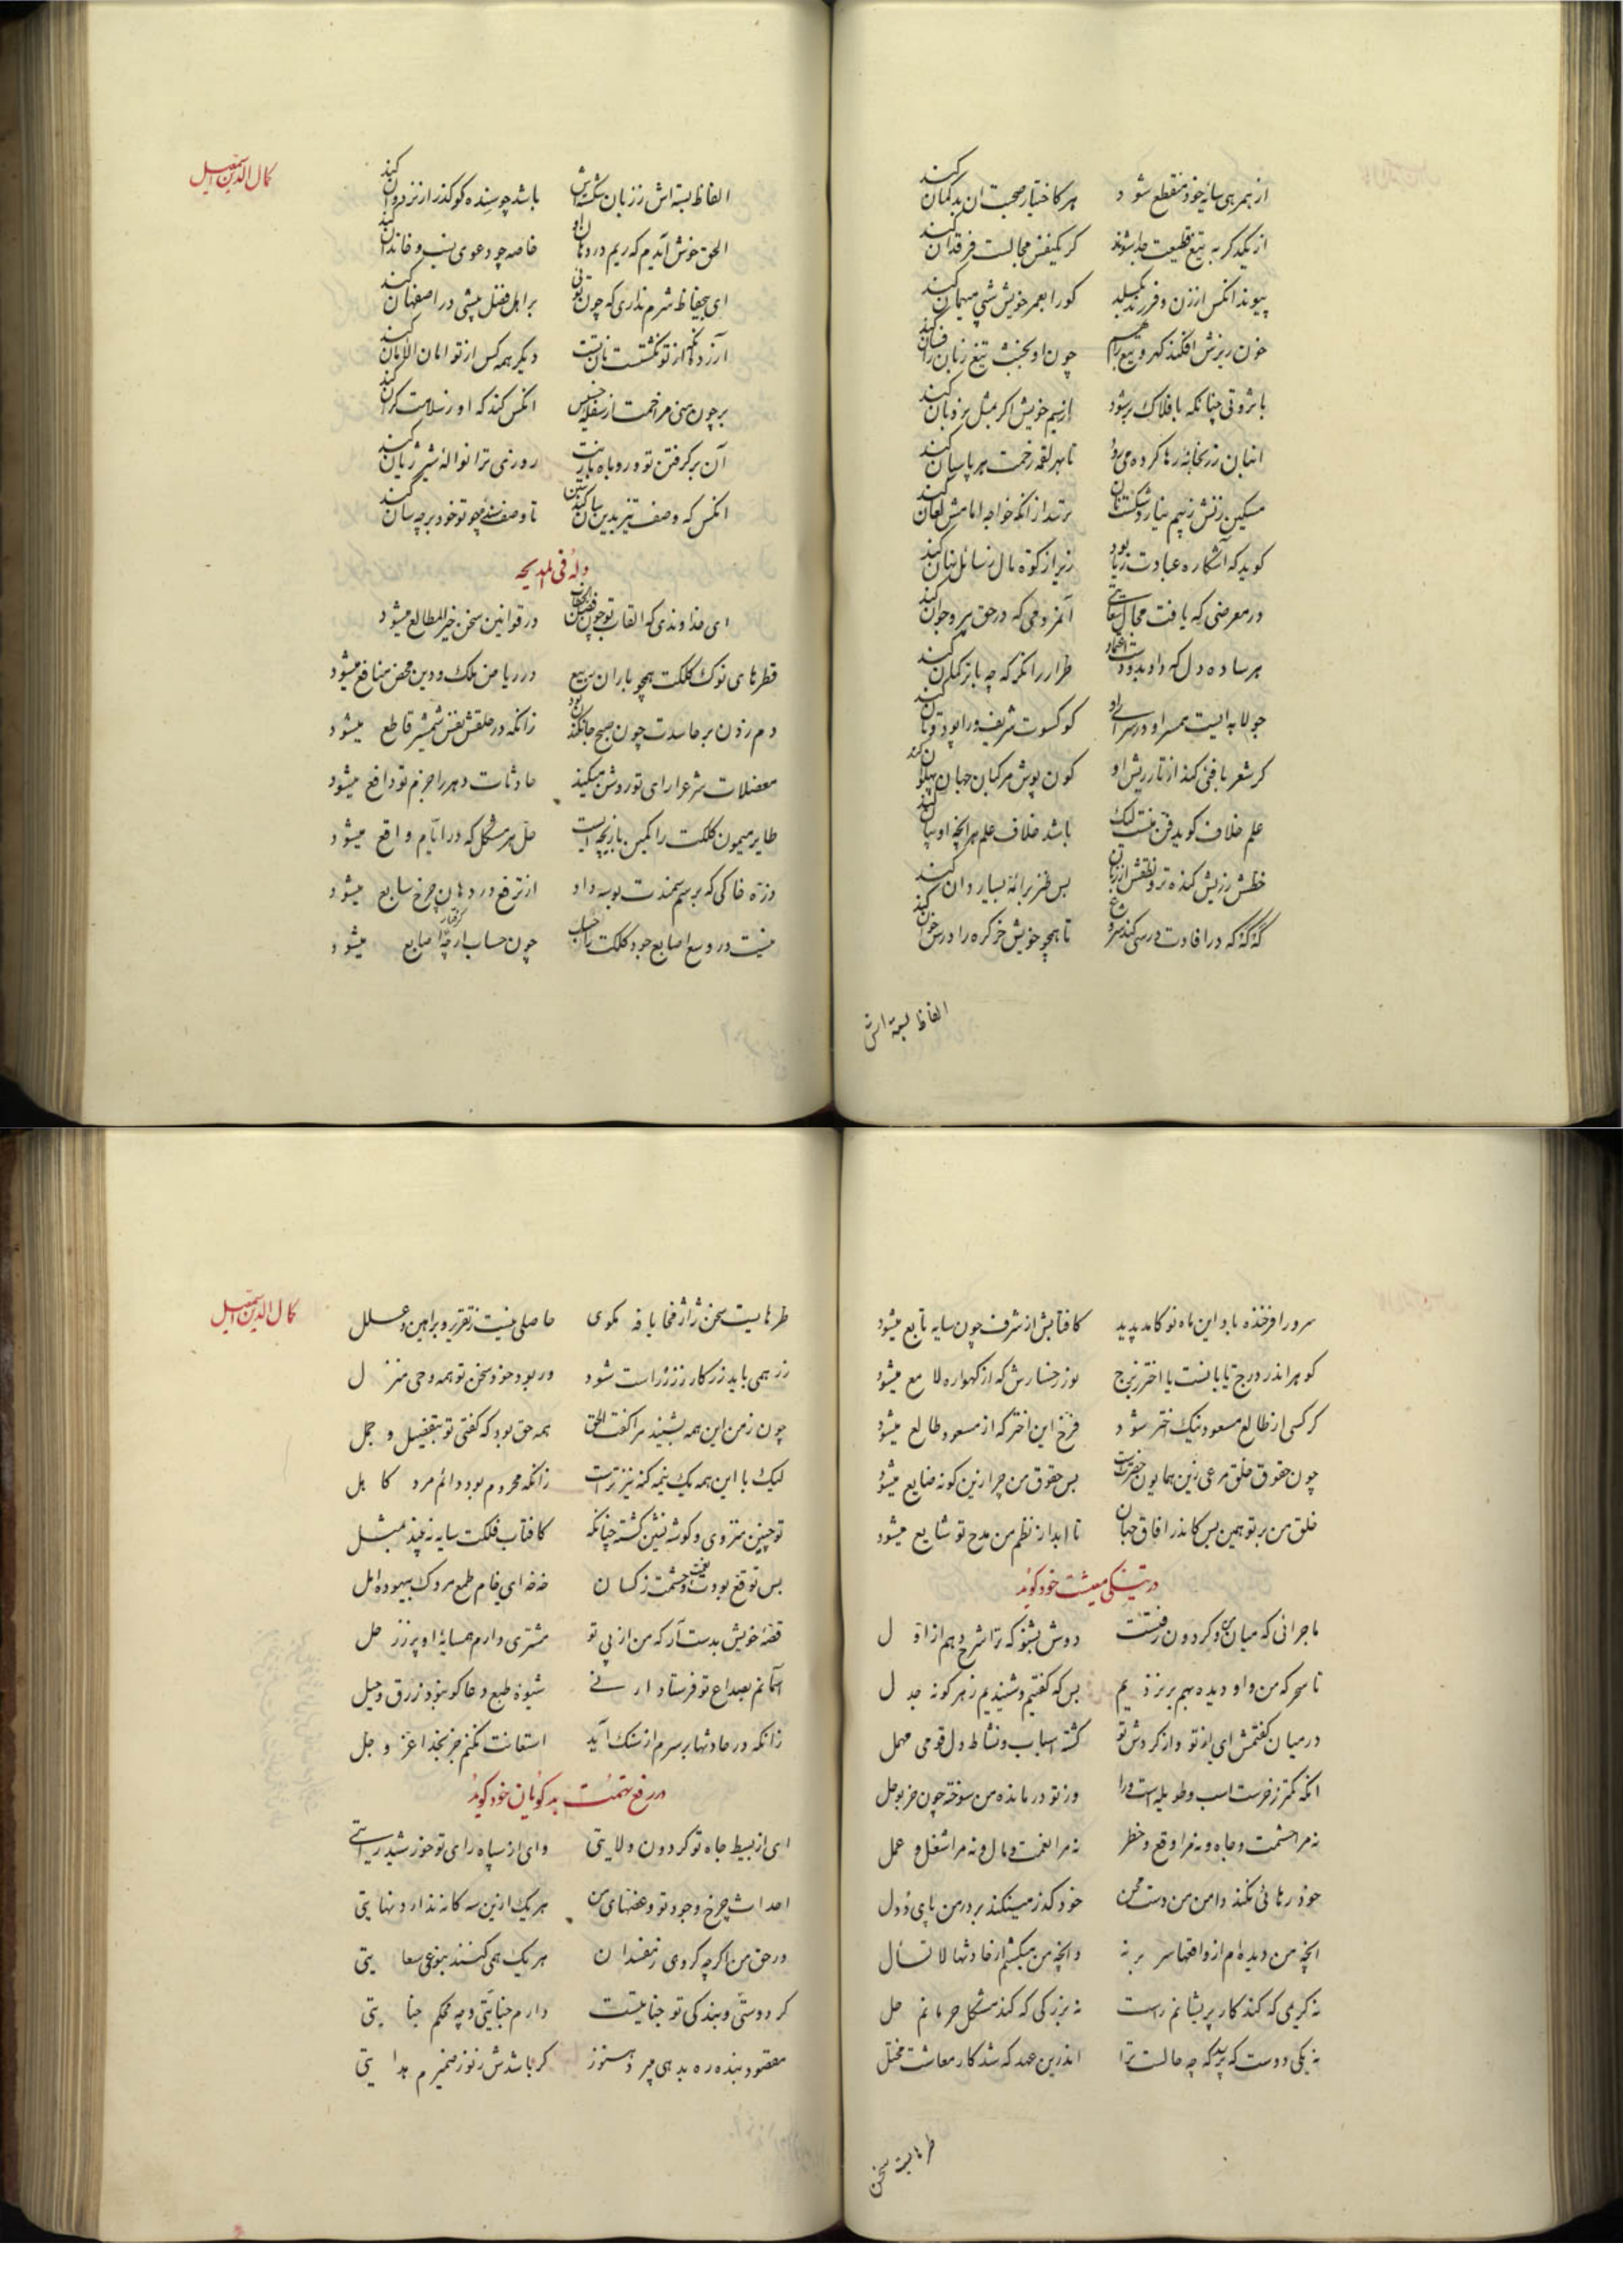 از همرهی سایه خود منقطع شود هر کاختیار صحبت ان بدگمان کند
از یکدگر به تیغ قطیعت جدا شوند گر یکنفس مجالست فرقدان کند
پیوند انکس از زن و فرزند بگسلد کورا بعمر خویش شبی میهمان کند
خون ریزش افکند چون او بخبث تیغ زبان را فسان کند
با ثروتی چنانکه بافلاک بر شود از بیم خویش اگر بمثل نردبان کند
انبان رها کرده تا بهر لقمه زحمت هر پاسبان کند
مسکین زنش ز بیم نیارد شکست نان ترسد از انکه خواجه امامش لعان کند
گوید که آشکاره عبادت ریا بود زیرا زکوة مال ز سائل نهان کند
در معرضی که یافت مجال آنمردمی که در حق پیر و جوان کند
هر ساده دل که داد بدو طرار را نگر که چه بازرگان کند
جولاهه ایست همسر او در سرای او کو کسوت شریف ورا پود و تان کند
گر شعر بافی کند از تار ریش او
علم خلاف گوید فن منست لیک باشد خلاف علم هر انچه او بیان کند
خطش ز ریش کنده تر و نطقش از زبان بس طنز بر ائمه بسیار دان کند
که در افادت درسی کند شروع تا همچو خویش خر کره را درس خوان کند
الفاظ بسته اش
کمال الدین اسمعیل
الفاظ بسته اش ز زبان شکسته اش باشد چو بنده کو گذر از نردبان کند
الحق خوش آیدم که ریم در دهان او خاصه چو دعوی نسب و خاندان کند
ای بیحفاظ شرم نداری که چون توئی بر اهل فضل پیشی در اصفهان کند
آزرده نگشتست نان تست دیگر همه کس از تو امان الامان کند
بر چون منی مزاحمت از سفله خسیس انکس کند که او
آن برگرفتن تو و روباه بازیت روزی ترا نواله شیر ژیان کند
انکس که وصف تیز بدین سان کند تا وصف سنده چو تو خود بر چه سان کند
وله فی المدیحه
ای خداوندی که القاب تو چون فصل الخطاب در قوانین سخن خیر المطالع میشود
قطرهای نوک کلکت همچو باران ربیع در ریاض ملک و دین محض منافع میشود
دم زدن بر حاسدت چون صبح جانکندن بود زانکه در حلقش نفس شمشیر قاطع میشود
معضلات شرع را رای تو روشن میکند حادثات دهر را حزم تو دافع میشود
طایر میمون کلکت را کمین بازیچه ایست حل هر مشکل که در ایام واقع میشود
ذره خاکی که بر سم سمندت بوسه داد از ترفع در دهان چرخ سابع میشود
نیست در وسع اصابع جود کلکت را حساب چون حساب ار چه گرفتار اصابع میشود
سرورا فرخنده بادا این ماه نو کامد پدید کافتابش از شرف چون سایه تابع میشود
گوهر اندر درج تابانست یا اختر ز برج نور رخسارش که از گهواره لامع میشود
گر کسی از طالع مسعود نیک اختر شود فرخ این اختر که از مسعود طالع میشود
چون حقوق خلق مرعی زین همایون حضرتست بس حقوق من چرا زین گونه ضایع میشود
خلق من بر تو همین بس کاندر افاق جهان تا ابد از نظم من مدح تو شایع میشود
در تنگی معیشت خود گوید
ماجرائی که میان من و گردون رفتست دوش بشنو که ترا شرح دهم از اول
تا سحر که من و او دیده بهم بر نزدیم بس که گفتیم و شنیدیم ز هر گونه جدل
در میان گفتمش ای از تو و از گردش تو گشته اسباب و نشاط دل قومی مهمل
انکه کمتر ز خرست اسب و طویله است ورا وز تو در مانده من سوخته چون خر بوحل
نه مرا حشمت و جاه و نه مرا وقع و خطر نه مرا نعمت و مال و نه مرا شغل و عمل
خود رهائی نکند دامن من دست محن خود گذر مینکند بر در من پای دول
انچه من دیده ام از واقعها سر بر نه وانچه من میکشم از حادثها لا تسأل
نه کریمی که کند کار پریشانم راست نه بزرگی که کند مشکل حرمانم حل
نه یکی دوست که پرسد که چه حالست ترا اندرین عهد که شد کار معاشت مختل
طرهایست سخن
کمال الدین اسمعیل
طرهایست سخن ژاژ مخایا فه مگوی حاصلی نیست ز تقریر و براهین و علل
زر همی باید زر کار ز زر راست شود ور بود خود سخن تو همه وحی منزل
چون ز من این همه بشنید مرا گفت الحق همه حق بود که گفتی تو بتفصیل و جمل
لیک با این همه یک نیمه گنه نیز تراست زانکه محروم بود دائم مرد کاهل
تو چنین منزوی و گوشه نشین گشته چنانکه کافتاب فلکت سایه نبیند بمثل
بس توقع بودت نعمت و حشمت ز کسان خه خه ای خام طمع مردک بیهوده امل
قصه خویش بدست آر که من از پی تو مشتری دارم همسایه او بر ز زحل
آسمانم بصداع تو فرستاد ار نی شیوه طبع دعا گو نبود زرق و حیل
زانکه در حادثها بر سرم از سنگ آید استعانت نکنم جز بخدا عز و جل
در رفع تهمت بدگویان خود گوید
ای از بسیط جاه تو گردون ولایتی وای از سپاه رای تو خورشید رایتی
احداث چرخ و جود تو و غصهای من هر یک ازین سه گانه ندارد نهایتی
در حق من اگر چه گروهی ز مفسدان هر یک همی کنند بنوعی سعایتی
گر دوستی و بندگی تو جنایتست دارم جنایتی و چه محکم جنایتی
مقصود بنده ره بدهی میبرد هنوز گر باشدش ز نور ضمیرم هدایتی